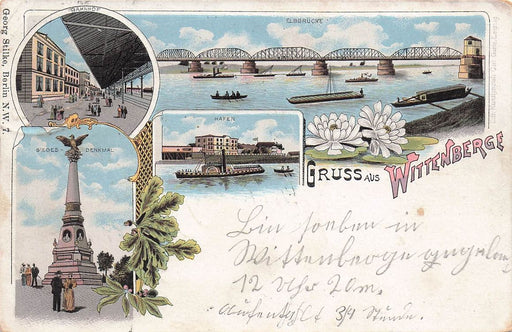 BAHNHOF
ELBBRÜCKE
Georg Stilke, Berlin N.W. 7.
SIEGES DENKMAL
HAFEN
GRUSS AUS WITTENBERGE
Bin soeben in
Wittenberge
12 Uhr 20 M.
Aufenthalt 3/4 Stunde.